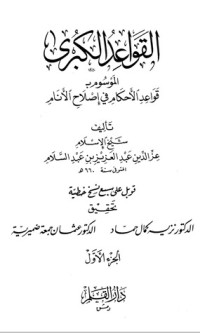 القواعد الكبرى
الموسوم بـ
قواعد الأحكام في إصلاح الأنام
تأليف
شيخ الإسلام
عز الدين عبد العزيز بن عبد السلام
المتوفى سنة ٦٦٠ هـ
قوبل على سبع نسخ خطية
تحقيق
الدكتور نزيه كمال حماد الدكتور عثمان جمعة ضميرية
الجزء الأول
دار القلم
دمشق